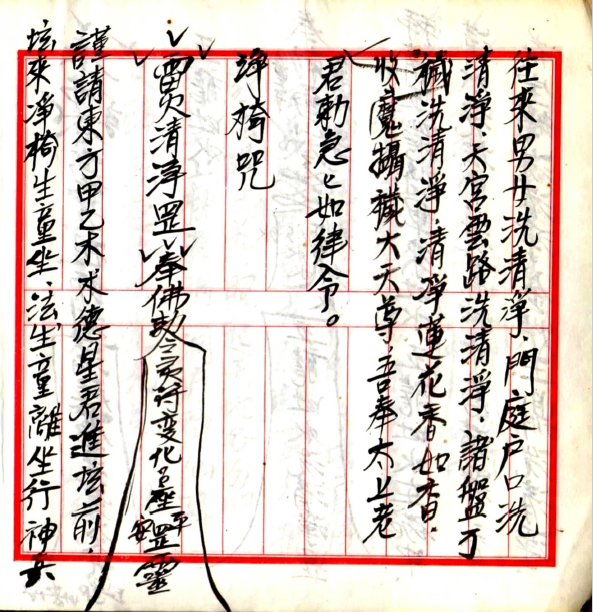 往來男女洗清淨、門庭户口洗
清淨、天宮雲路洗清淨、諸盤丁
穢洗清淨、清淨蓮花香如香、
收魔攝穢大天尊、吾奉太上老
君勅急〻如律令。
淨椅咒
清淨罡奉佛敕令行变化座罡
謹請東方甲乙木木德星君進坛前、
坛來淨椅生童坐、法生童離坐行神兵